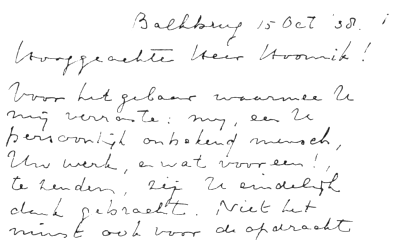 Balkbrug 15 Oct '38.
Hooggeachte Heer Hoornik!
Voor het gebaar waarmee U
mij verraste: mij, een U
persoonlijk onbekend mensch,
Uw werk, en wat voor een!,
te zenden, zij U eindelijk
dank gebracht. Niet het
minst ook voor de opdracht